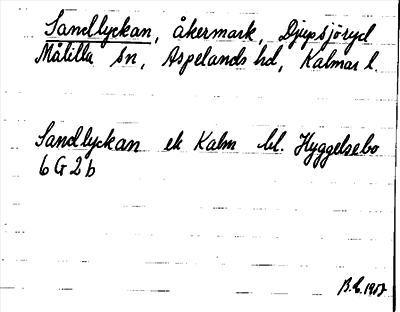 Sandlyckan, åkermark, Djupsjöryd
Målilla sn, Aspelands hd, Kalmar l.
Sandlyckan ek Kalm bl. Hyggelsebo
6 G 2 b